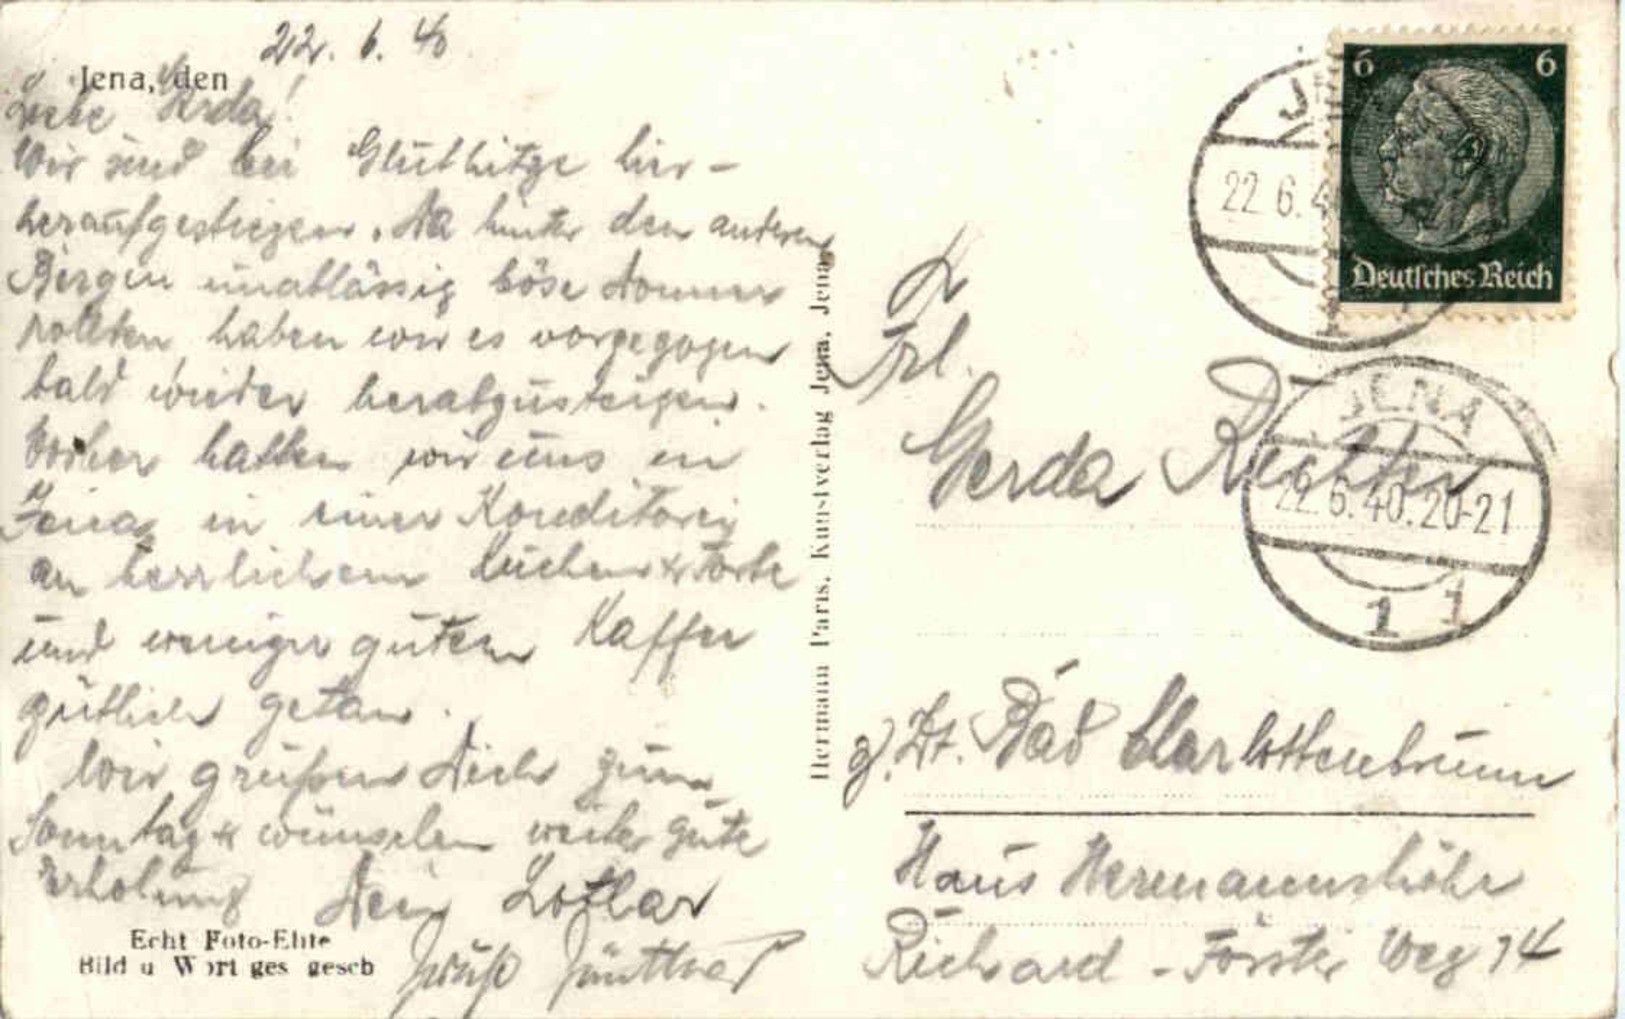 22. 6. 40
Jena, den
Liebe Gerda!
Wir sind bei Gluthitze hier-
heraufgestiegen. Da hinter den anderen
Bergen unablässig böse Donner
rollten haben wir es vorgezogen
bald wieder herabzusteigen.
Vorher hatten wir uns in
Jena, in einer Konditorei
an herrlichem Kuchen u. Torte
und weniger gutem Kaffee
gütlich getan.
Wir grüßen Dich zum
Sonntag u. wünschen weiter gute
Erholung Dein Lothar
Gruß
Echt Foto-Elite
Bild u Wort ges gesch
Hermann Paris, Kunstverlag Jena, Jena
6 6
Deutsches Reich
22. 6. 4
JENA
22.6.40.20-21
1 1
Frl.
Gerda Richter
z. Zt. Bad Charlottenbrunn
Haus Hermannshöhe
Richard-Förster Weg 14